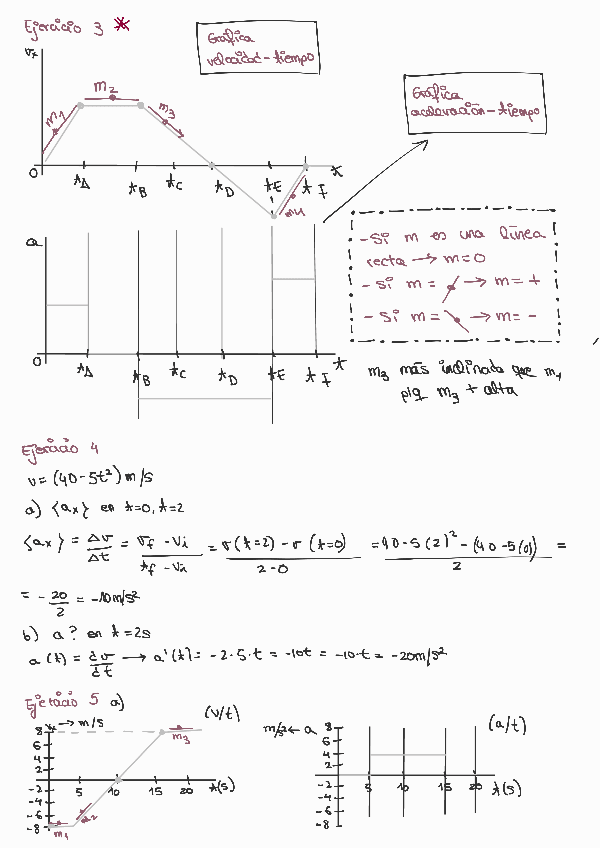 Ejercicio 3 *
Gráfica
velocidad-tiempo
vx
m1
m2
m3
m4
0
tA
tB
tC
tD
tE
tF
t
Gráfica
aceleración-tiempo
a
0
tA
tB
tC
tD
tE
tF
t
- Si m es una línea
recta → m=0
- Si m = → m= +
- Si m = → m= -
m3 más inclinada que m4
p/q m3 + alta
Ejercicio 4
v= (40-5t²) m/s
a) {ax} en t=0, t=2
{ax} = Δv/Δt = vf - vi / tf - vi = v(t=2) - v (t=0) / 2-0 = 40-5(2)² - (40-5(0) / 2 =
= - 20/2 = -10m/s²
b) a? en t= 2s
a (t) = dv/dt → a'(t) = -2·5·t = -10t = -10·t = -20m/s²
Ejercicio 5 a)
→ m/s
(v/t)
8
6
4
2
-2
-4
-6
-8
5
10
15
20
t(s)
m1
m3
m/s² a
(a/t)
8
6
4
2
-2
-4
-6
-8
5
10
15
20
t(s)